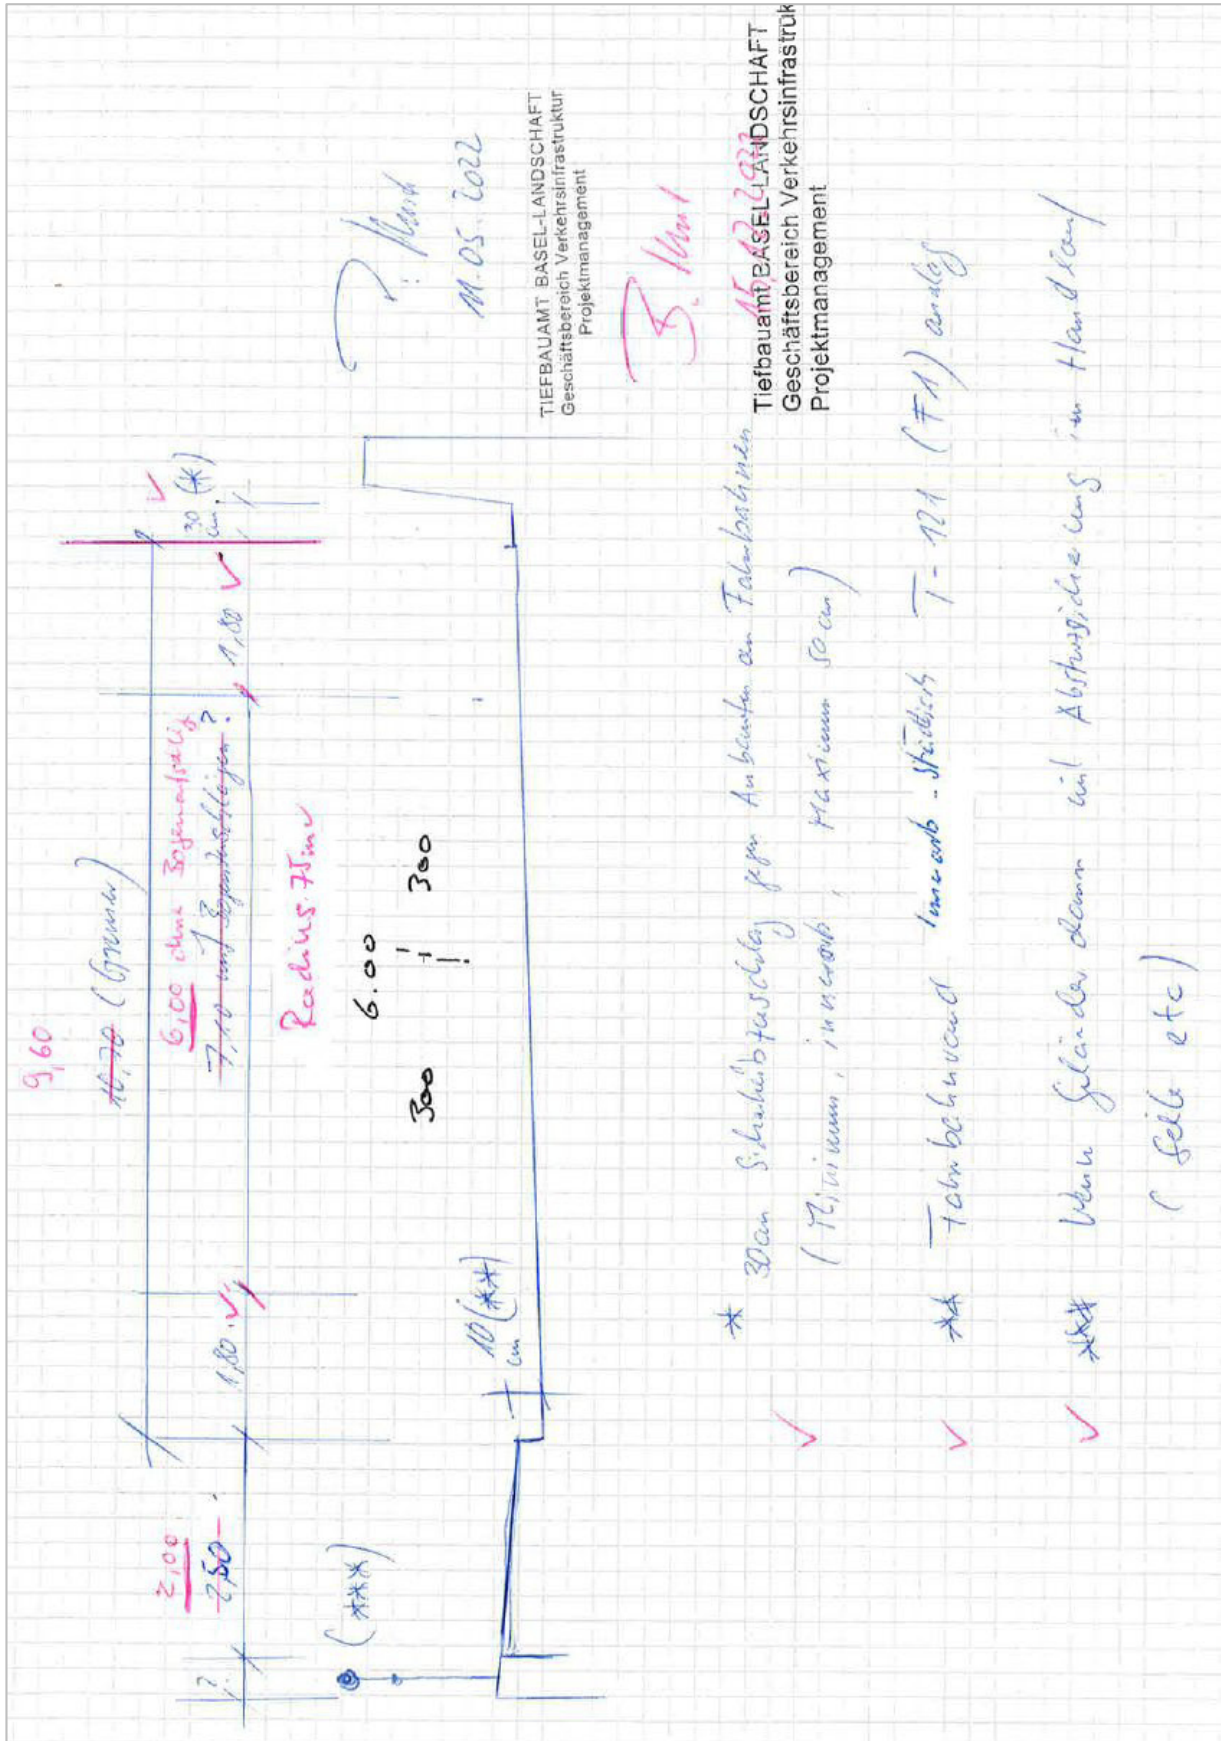 9,60
10,70 (Grenzen)
2,00
2,50
6,00 ohne Bogenaufschlag
7,10 mit Bogenzuschlägen?
?
1,80
1,80
30 cm (*)
Radius 75m
(***)
6.00
300
300
10 (**)
cm
11.05.2022
TIEFBAUAMT BASEL-LANDSCHAFT
Geschäftsbereich Verkehrsinfrastruktur
Projektmanagement
Tiefbauamt BASEL-LANDSCHAFT
Geschäftsbereich Verkehrsinfrastruk
Projektmanagement
* 30cm Sicherheitszuschlag gegen Anbauten an Fahrbahnen
(Minimum, innerorts, Maximum 50 cm)
** Fahrbahnrand innerorts - städtisch T-121 (F1) analog
*** Wenn Geländer dann mit Absturzsicherung im Handlauf
(Seile etc)